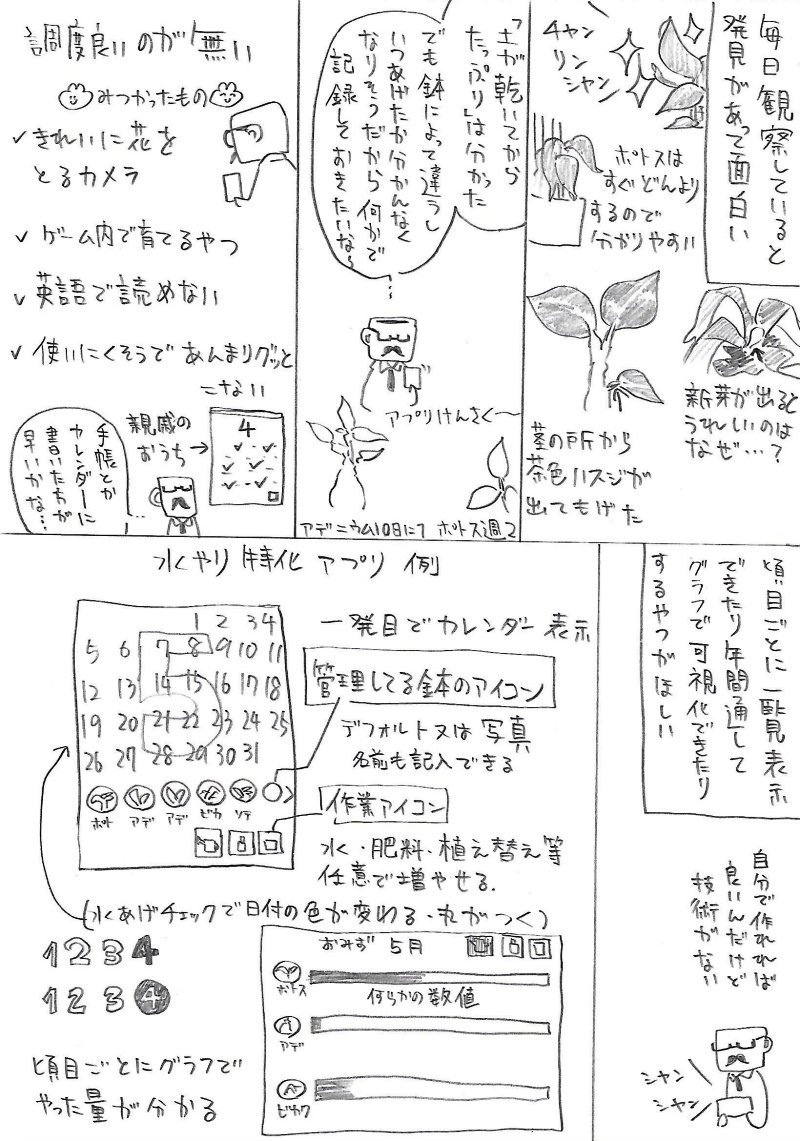 毎日観察していると
発見があって面白い
チャン
リン
シャン
ポトスは
すぐどんより
するので
分かりやすい
新芽が出ると
うれしいのは
なぜ…?
茎の所から
茶色いスジが
出てもげた
「土が乾いてから
たっぷり」は分かった
でも鉢によって違うし
いつあげたか分かんなく
なりそうだから何かで
記録しておきたいな
…
アプリけんさく〜
アデニウム10日に1 ポトス週2
調度良いのが無い
みつかったもの
✓ きれいに花を
とるカメラ
✓ ゲーム内で育てるやつ
✓ 英語で読めない
✓ 使いにくそうであんまりグッと
こない
親戚の
おうち→
4
手帳とか
カレンダーに
書いた方が
早いかな…
項目ごとに一覧表示
できたり年間通して
グラフで可視化できたり
するやつがほしい
自分で作れれば
良いんだけど
技術がない
シャン
シャン
水やり特化アプリ例
1 2 3 4
5 6 7 8 9 10 11
12 13 14 15 16 17 18
19 20 21 22 23 24 25
26 27 28 29 30 31
ポト アデ アデ ビカ ソテ
一発目でカレンダー表示
管理してる鉢のアイコン
デフォルト又は写真
名前も記入できる
作業アイコン
水・肥料・植え替え等
任意で増やせる.
(水あげチェックで日付の色が変わる・丸がつく)
1 2 3 4
1 2 3 4
項目ごとにグラフで
やった量が分かる
おみず 5月
ポトス
何らかの数値
アデ
ビカク